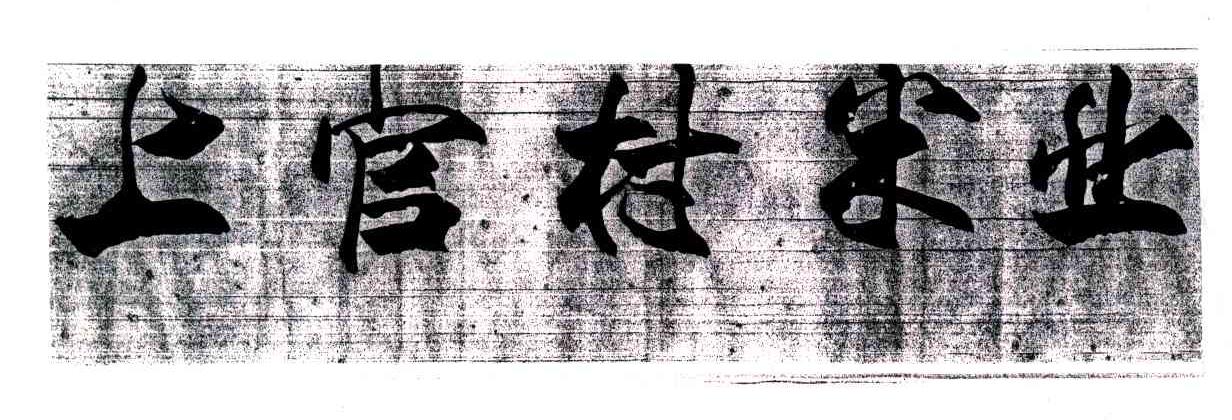 上官村米业